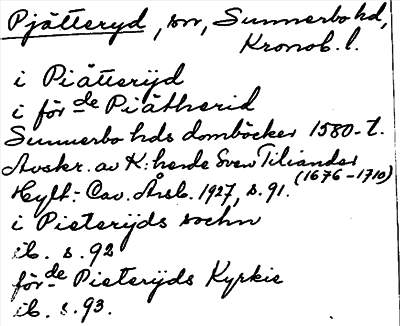 Pjätteryd, sn, Sunnerbo hd,
Kronob. l.
i Piätterijd
i för de Piätherid
Sunnerbo hds domböcker 1580-t.
Avskr. av K:herde Sven Tiliander
(1676-1710)
Hylt-Cav. Årsb. 1927, s. 91.
i Pieterijds sochn
ib. s. 92
för de Pieterijds Kyrkie
ib. s. 93.